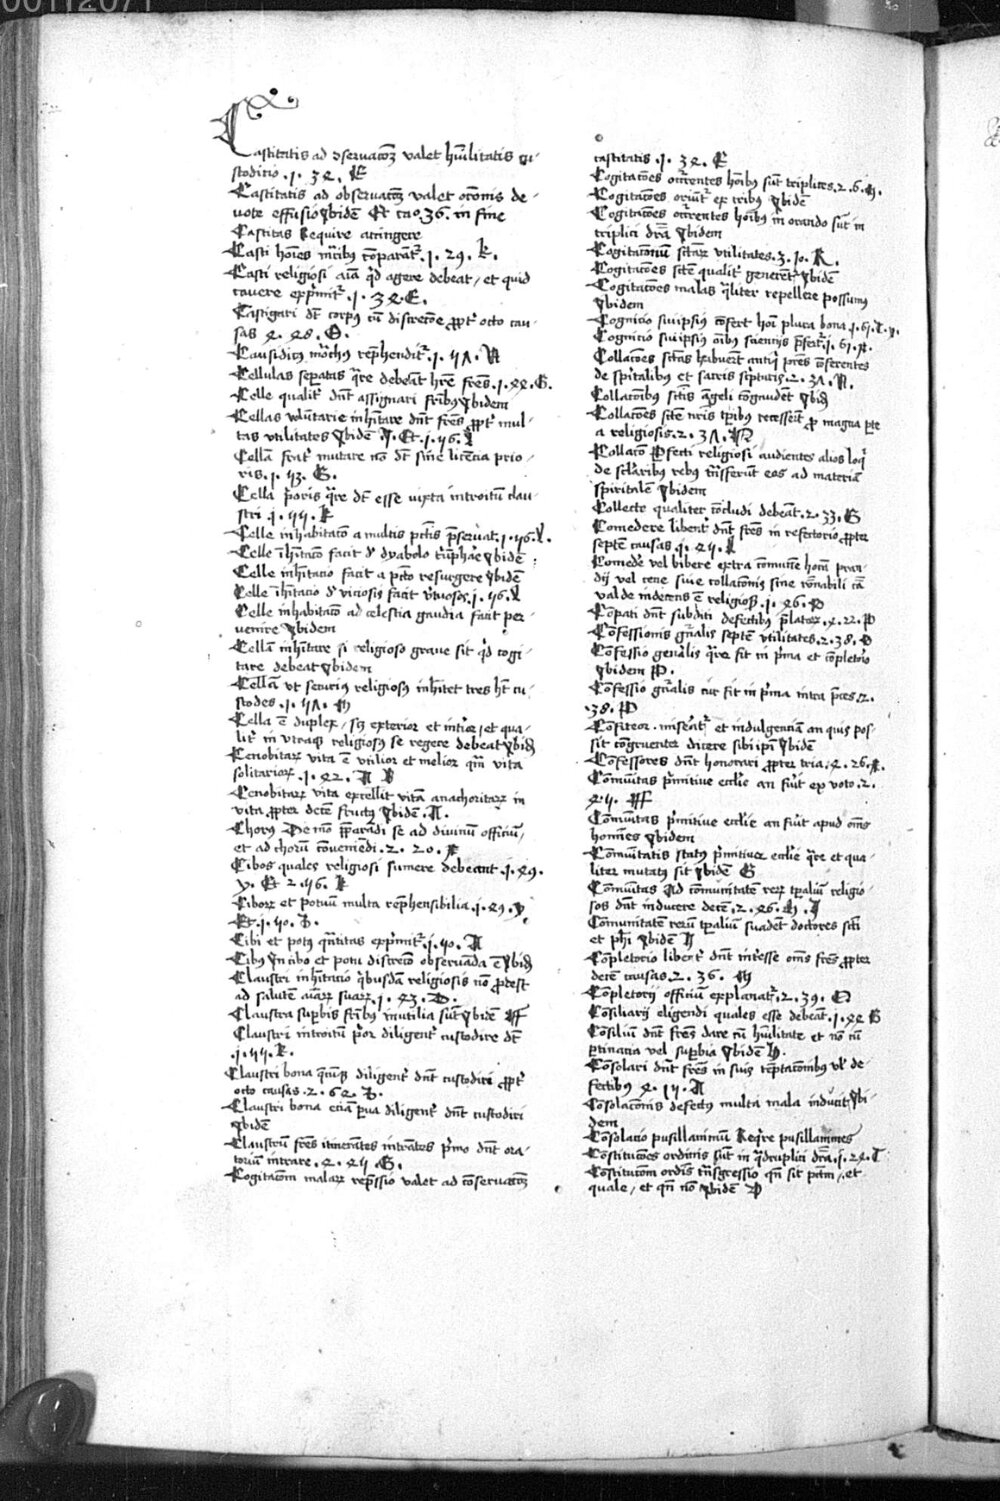 00112071
Castitatis ad ɔservacōꝫ valet hūilitatis cu-
stodicio .i. 32. E
Castitatis ad observacōꝫ valet orōnis de-
vote effusio ybidē Et cao. 36. in fine
Castitas Require attingere
Casti hoīes
Casti religiosi
cavere exprimitr̄ .i. 32. E.
Castigari dt̄ corpus cū discrecōe ꝓpt̄ octo cau-
sas 2. 28. G.
Causidicꝰ
Cellulas seꝑatas q̄re debeāt hr̄e frēs .i. 22. G.
Celle qualit̄ dn̄t assignari frībꝰ ybidem
Cellas volūtarie inh̄itare dn̄t frēs ꝓpt̄ mul-
tas utilitates ybidē
Cellā frat̄ mutare nō dt̄ sine licēcia prio-
ris .i. 43. G.
Cella p̄oris q̄re dt̄ esse iuxta introitū clau-
stri .i. 44. K
Celle inhabitacō a multis pctīs p̄servat .i. 46. L.
Celle īh̄itacō facit d̄ dyabolo triūphare ybidē
Celle inh̄itacio facit a pctō resurgere ybidē
Celle īh̄itacio d̄ viciosis facit v̄tuosos .i. 46. L
Celle inhabitacō ad celestia gaudia facit per-
venire ybidem
Cellā inh̄itare si religioso grave sit q̄d cogi-
tare debeat ybidem
Cellā ut securiꝰ religiosꝰ inh̄itet tres h̄t cu-
stodes .i. 47. M
Cella ē duplex, sꝫ exterior et int̄ior, et qua-
lit̄ in utraqꝫ religiosꝰ se regere debeat ybid̄
Cenobitaꝝ vita ē utilior et melior qm̄ vita
solitarioꝝ .i. 42. A B
Cenobitaꝝ vita excellit vitā anachoritaꝝ in
vita ꝓpter decē fructꝰ ybidē. A.
Chorus De mō p̄parādi se ad divinū officiū,
et ad chorū cōveniēdi. 2. 20.
Cibos quales religiosi sumere debeant .i. 49.
y. Et 2. 46. K
Ciboꝝ et potuū multa rep̄hensibilia .i. 49. y
Et .i. 40. B.
Cibi et potꝰ q̄ntitas exprimitr̄ .i. 40. A
Cibꝰ In cibo et potu discrecō observāda ē ybid̄
Claustri inh̄itacio q̄busdā religiosis nō ꝓdest
ad salutē aīaꝝ suaꝝ .i. 43. D.
Claustra suꝑbis frībꝰ inutilia sūt ybidē FF
Claustri introitū p̄or diligent̄ custodire dt̄
.i. 44. K.
Claustri bona diligent̄ dn̄t custodiri ꝓpt̄
octo causas. 2. 62. B.
Claustri bona eciā ꝑva diligent̄ dn̄t custodiri
ybidē
Claustrū frēs itinerātes intrātes p̄mo dn̄t ora-
toriū intrare. 2. 24 G.
Cogitacōm malaꝝ rep̄ssio valet ad cōservacōꝫ
castitatis .i. 32. E
Cogitacōes occurrentes hoībꝰ sūt triplices. 2. 6. M.
Cogitacōes oriūt̄ ex tribꝰ ybidē
Cogitacōes occurrentes hoībꝰ in orando sūt in
triplici dr̄a ybidem
Cogitacōnū sctāꝝ utilitates. 3. 10. K.
Cogitacōes sctē qualit̄ generēt̄ ybidē
Cogitacōes malas q̄liter repellere possumꝰ
ybidem
Cognicio suiipsiꝰ cōfert hoī plura bona .i. 61. T. y.
Cognicio suiipsiꝰ oībꝰ scienciis p̄fert̄ .i. 61.
Collacōes sctās habuerūt antiqi p̄res cōferentes
de spūalibus et sacris scripturis. 2. 37. N.
Collacōibꝰ sctīs āgeli cōgaudēt ybid̄
Collacōes sctē nr̄is tꝑibus recesserūt ꝓ magna ꝑte
a religiosis. 2. 37.
Collacō Ꝑfecti religiosi audientes alios loqi
de sclāribus rebus trāsferunt eos ad materiā
spiritalem ybidem
Collecte qualiter cōcludi debeāt. 2. 33. G
Comedere libent̄ dn̄t frēs in refectorio ꝓpter
septē causas .i. 24.
Comede̅ vel bibere extra cōmunē horā pran-
dii vel cene sive collacōnis sine rōnabili cā
valde indecens ē religiosꝫ .i. 26. D
Cōpati dn̄t subditi defectibꝰ p̄latoꝝ. 2. 22. D
Cōfessionis gn̄alis septē utilitates. 2. 38. O
Cōfessio genālis q̄re fit in p̄ma et cōpletorio
ybidem P.
Cōfessio gn̄alis cur fit in p̄ma intra p̄ces. 2.
.38. P
Cōfiteor. misereat̄ et indulgenciā an quis pos-
sit cōgruenter dicere sibi ipī ybidē
Cōfessores dn̄t honorari ꝓpter tria. 2. 26.
Cōmūitas p̄mitive eccīe an fuit ex voto. 2.
24. FF
Cōmūitas p̄mitive eccīe an fuit apud omēs
homines ybidem
Cōmūitatis statꝰ p̄mitive eccīe q̄re et qua-
liter mutatꝰ sit ybidē G
Cōmūitas Ad cōmunitatē reꝝ tꝑaliū religio-
sos dn̄t inducere decē. 2. 46. H. I
Cōmunitatē rerū tꝑaliū suadēt doctores scī
et phī ybidē H
Cōpletorio libent̄ dn̄t int̄esse omēs frēs ꝓpter
decē causas. 2. 36. M
Cōpletorii officiū explanat̄. 2. 39. O
Cōsiliarii eligendi quales esse debeāt .i. 22 B
Cōsiliū dn̄t frēs dare cū hūilitate et nō cū
ꝑtinacia vel suꝑbia ybidē H.
Cōsolari dn̄t frēs in suis tēptacōnibꝰ vl̄ de-
fectibus 2. 14. A
Cōsolacōnis defectꝰ multa mala inducit ybi-
dem
Cōsolacio pusillanimū Reqire pusillanimes
Cōstitucōes ordinis sūt in q̄druplici dr̄a .i. 22. T
Cōstitucōm ordīs trāsgressio qn̄ sit pctm̄, et
quale, et qn̄ nō ybidē D